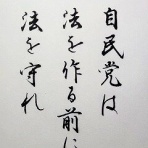 自民党は
法を作る前に
法を守れ